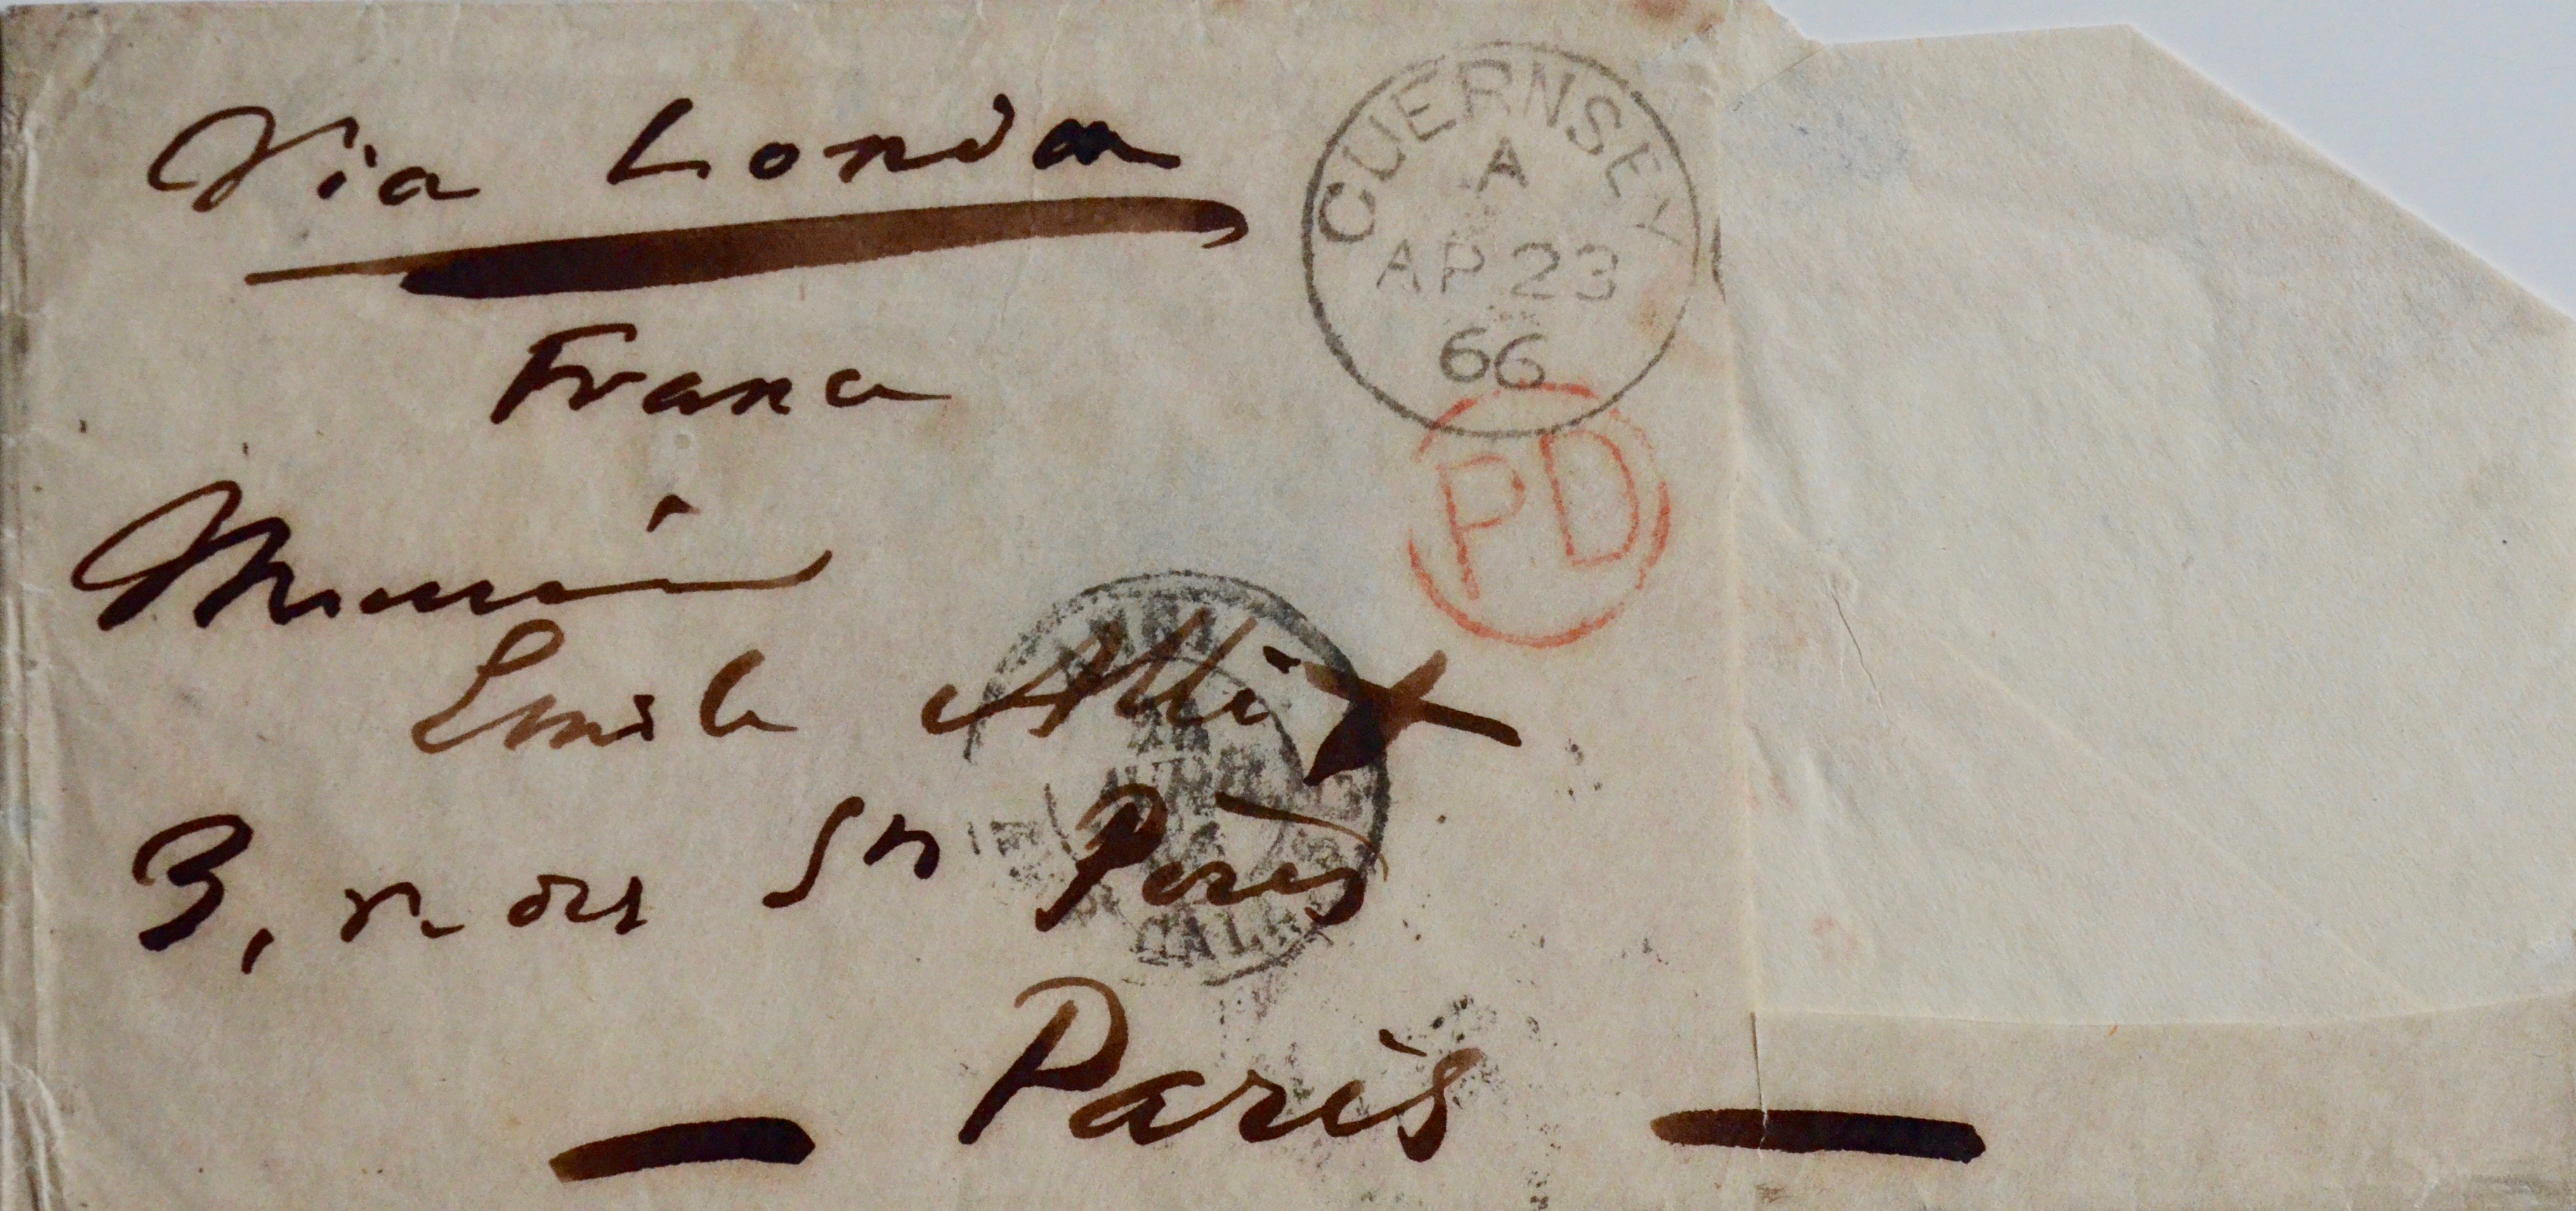 Via London
France
GUERNSEY
A
AP 23
66
PD
Monsieur
Emile Allix
3, r. des Sts Pères
CALAIS
Paris